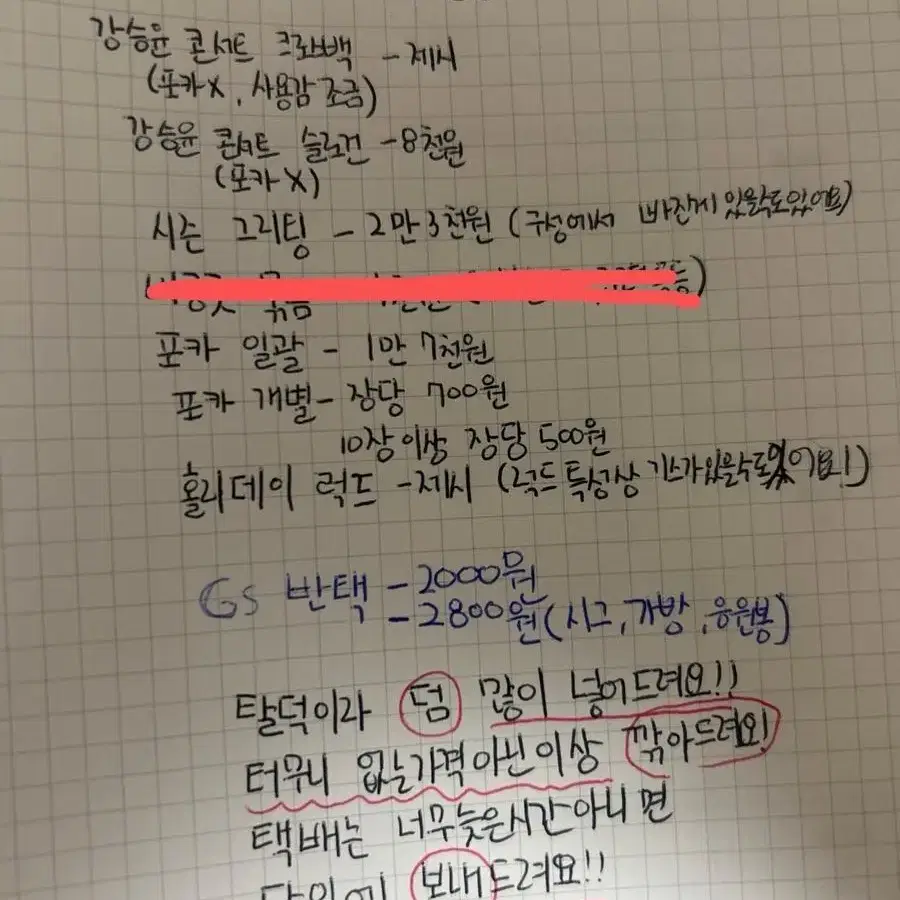 강승윤 콘서트 크로스백 - 제시
(포카X, 사용감 조금)
강승윤 콘서트 슬로건 - 8천원
(포카X)
시즌 그리팅 - 2만 3천원 (구성에서 빠진게 있을수도 있어요)
포카 일괄 - 1만 7천원
포카 개별 - 장당 700원
10장 이상 장당 500원
홀리데이 럭드 - 제시 (럭드 특성상 기스가 있을수도 있어요!)
GS 반택 - 2000원
- 2800원 (시그, 가방, 응원봉)
탈덕이라 덤 많이 넣어드려요!!
터무니 없는 가격 아닌 이상 깎아드려요!
택배는 너무 늦은 시간 아니면
당일에 보내드려요!!